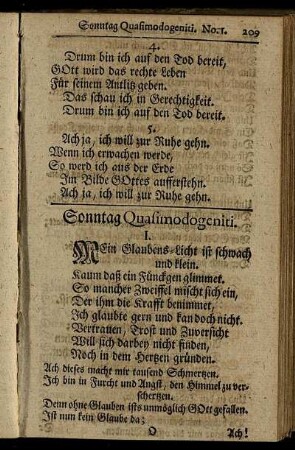 Sonntag Quasimodogeniti. No. 1. 209
4.
Drum bin ich auf den Tod bereit,
GOtt wird das rechte Leben
Für seinem Antlitz geben.
Das schau ich in Gerechtigkeit.
Drum bin ich auf den Tod bereit.
5.
Ach ja, ich will zur Ruhe gehn.
Wenn ich erwachen werde,
So werd ich aus der Erde
Im Bilde GOttes aufferstehn.
Ach ja, ich will zur Ruhe gehn.
Sonntag Quasimodogeniti.
I.
MEin Glaubens-Licht ist schwach
und klein.
Kaum daß ein Fünckgen glimmet.
So mancher Zweiffel mischt sich ein,
Der ihm die Krafft benimmet,
Ich glaubte gern und kan doch nicht.
Vertrauen, Trost und Zuversicht
Will sich darbey nicht finden,
Noch in dem Hertzen gründen.
Ach dieses macht mir tausend Schmertzen.
Ich bin in Furcht und Angst, den Himmel zu ver-
schertzen.
Denn ohne Glauben ists unmöglich GOtt gefallen.
Ist nun kein Glaube da;
O Ach!